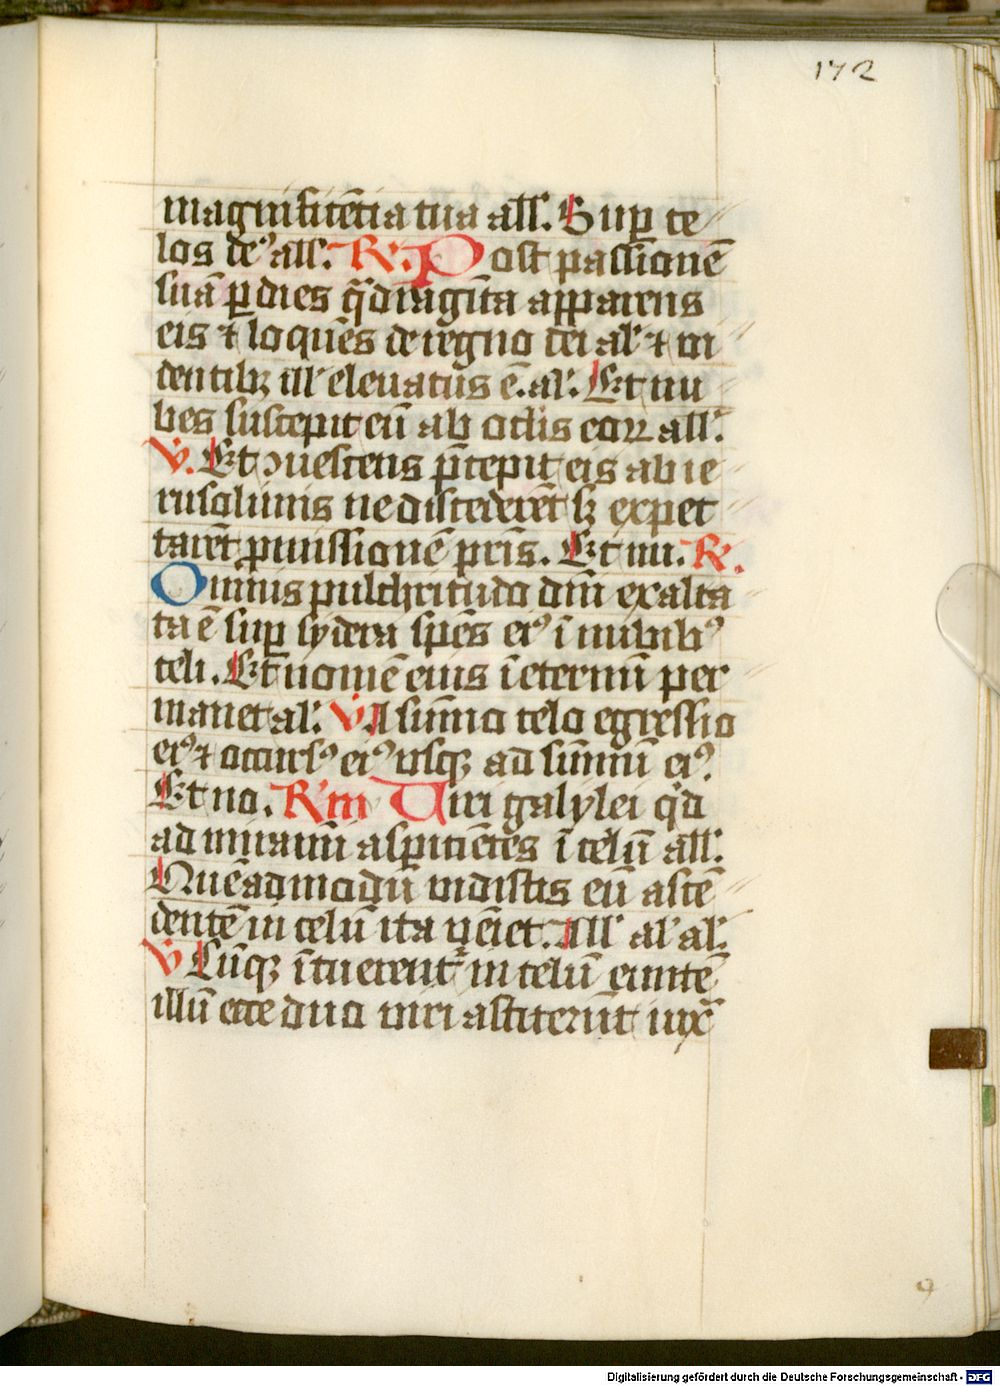 172
magnifice̅tia tua all'. Sup̲ ce
los de⁹ all'. R̸. Post passione̅
sua̅ p̲ dies q̅dragi̅ta apparens
eis ⁊ loque̅s de regno dei al' ⁊ vi
dentib; ill' eleuatus e̅. al'. Et nu
bes suscepit eu̅ ab oclis eoꝝ all'.
V̸. Et ꝯuescens p̅cepit eis ab ie
rusolimis ne discedere̅t s; expec
tare̅t p̲missione̅ pr̅is. Et nu. R̸.
Omnis pulchritudo dn̅i exalta
ta e̅ sup̲ sydera spe̅s ei⁹ i̅ nubib⁹
celi. Et nome̅ eius i̅ eternu̅ per
manet al'. V̸ A su̅mo celo egressio
ei⁹ ⁊ occurs⁹ ei⁹ usq; ad su̅mu̅ ei⁹.
Et no. R̸m Uiri galylei q'd
ad miramı̅ aspicie̅tes i̅ celu̅ all'.
Que̅admodu̅ vidistis eu̅ asce̅
dente̅ in celu̅ ita ve̅iet. All' al' al'.
V̸ Cu̅q; i̅tuerent' in celu̅ eunte̅
illu̅ ecce duo viri astiteru̅t iux̅
9
Digitalisierung gefördert durch die Deutsche Forschungsgemeinschaft - DFG